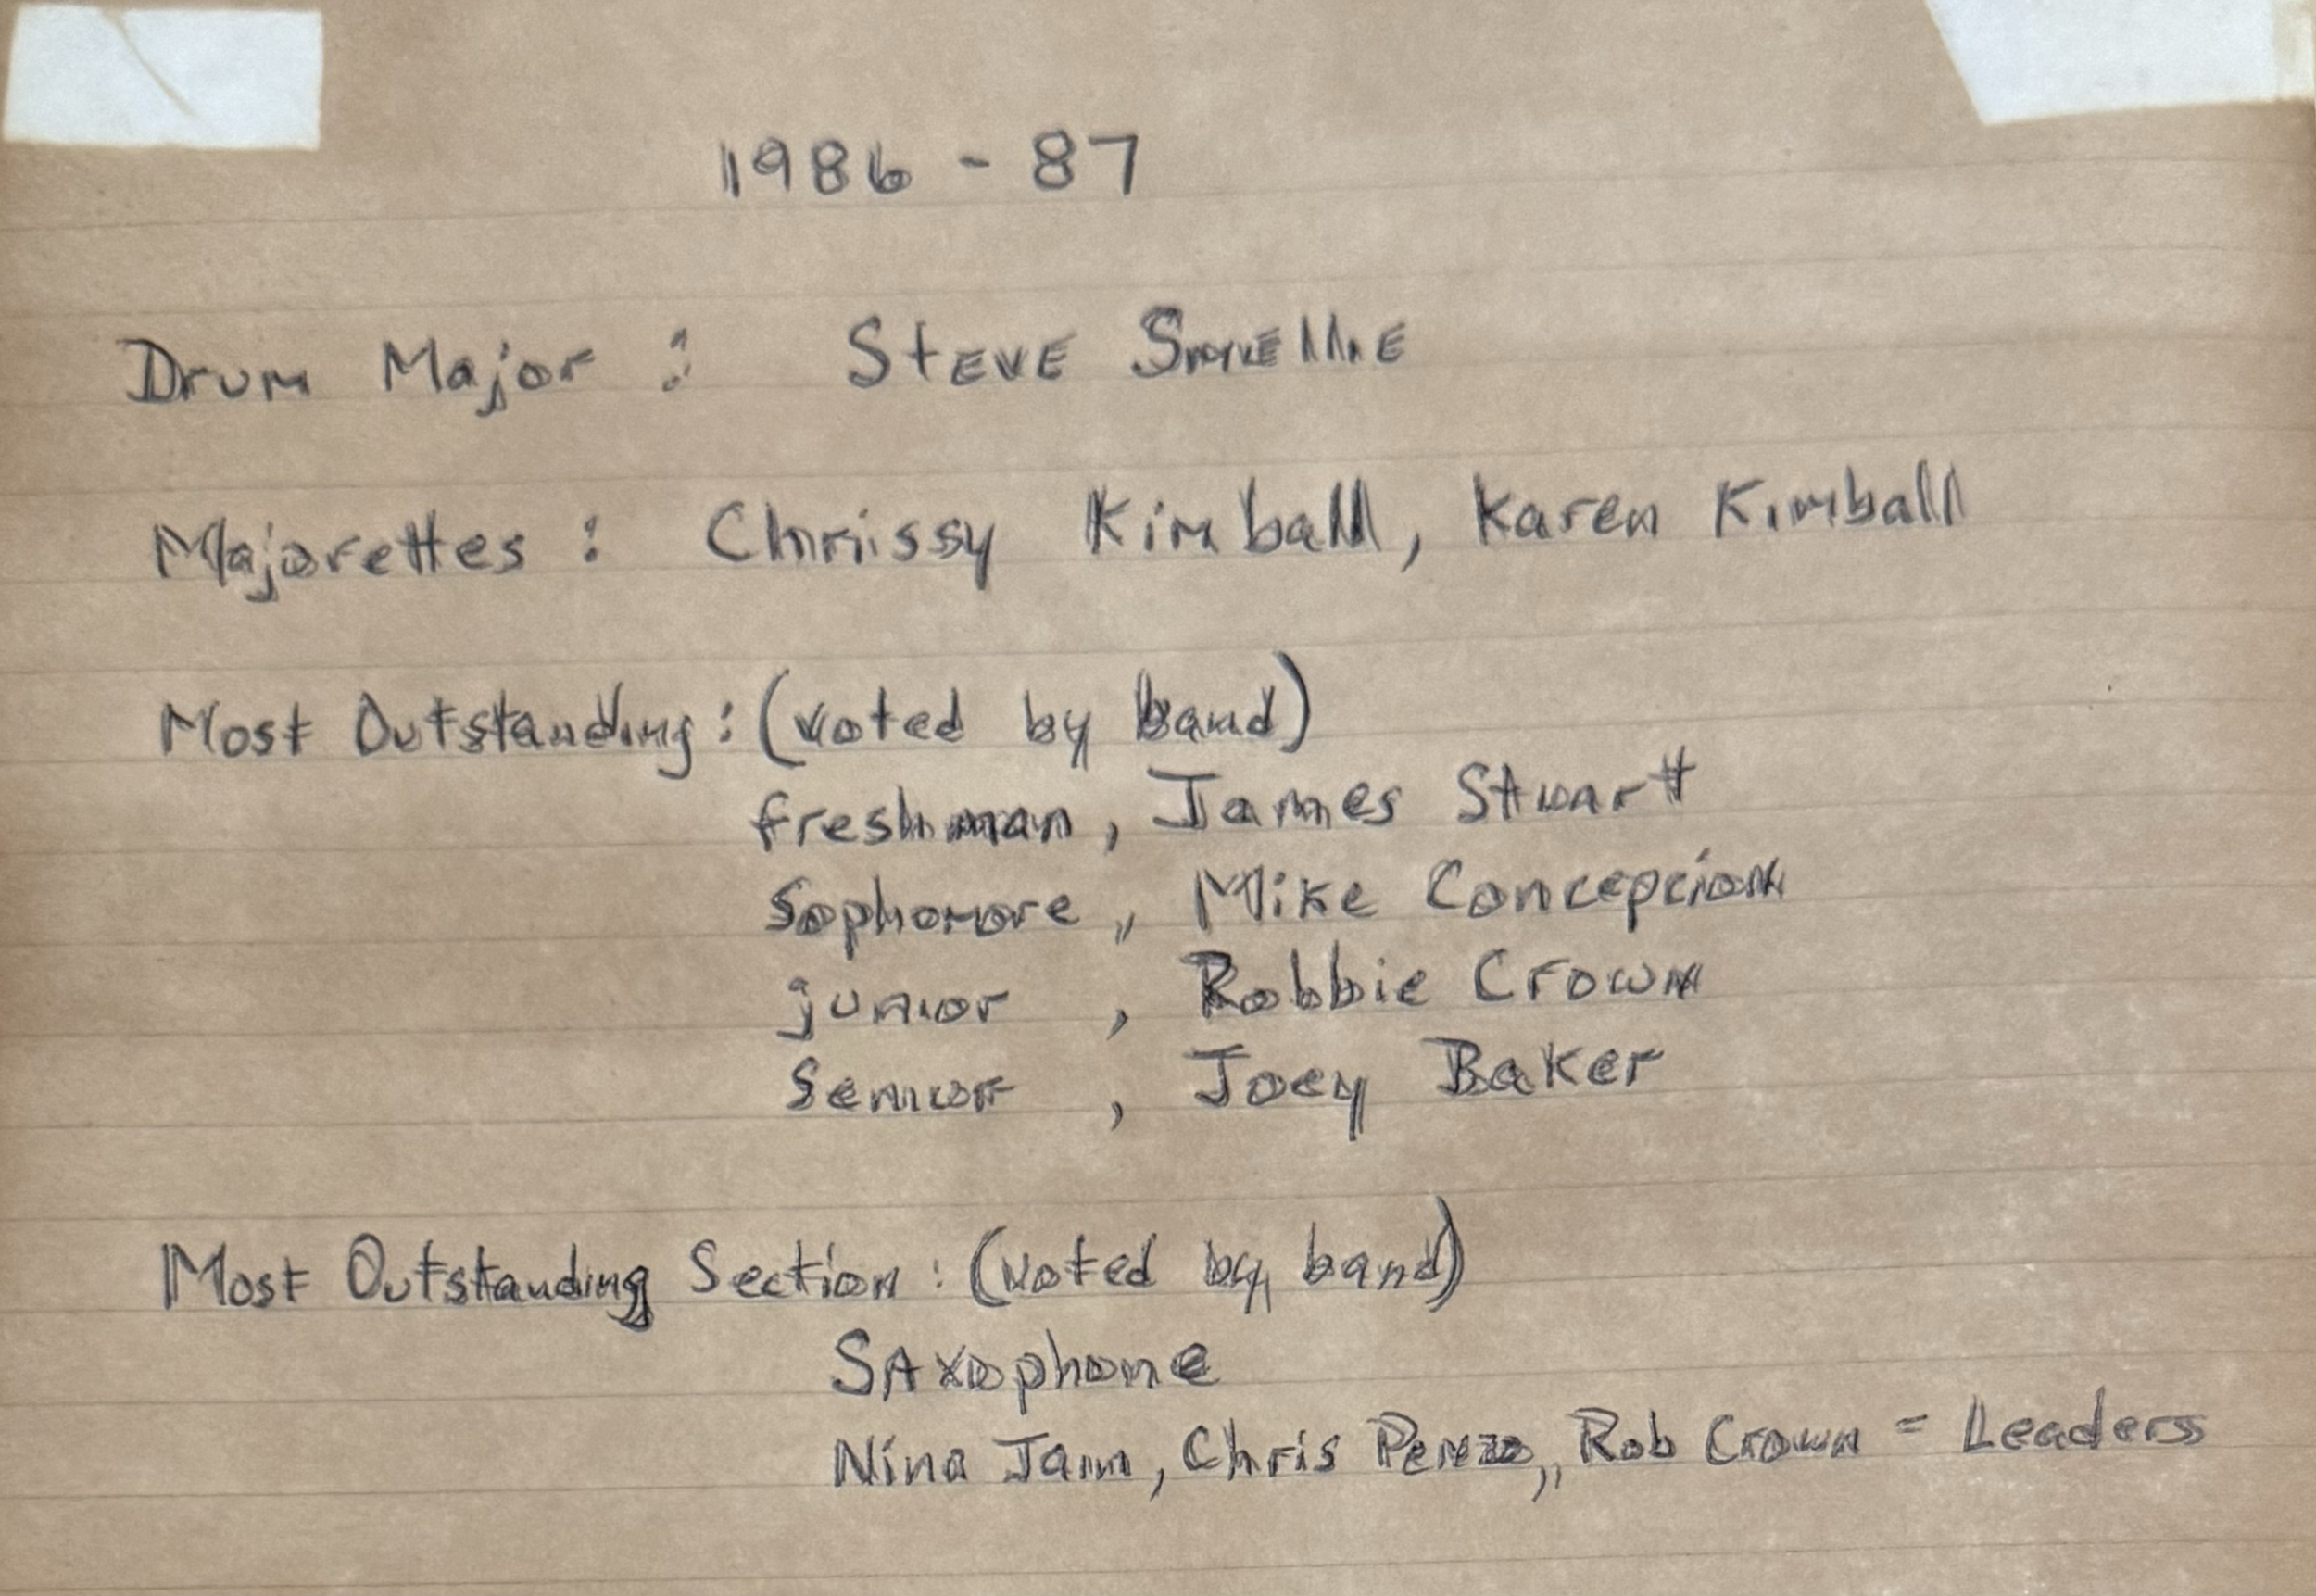 1986 - 87
Drum Major : Steve Smellie
Majorettes : Chrissy Kimball, Karen Kimball
Most Outstanding : (voted by band)
freshman, James Stuart
sophomore, Mike Concepcion
junior, Robbie Crown
senior, Joey Baker
Most Outstanding Section : (voted by band)
Saxophone
Nina Jam, Chris , Rob Crown = Leaders